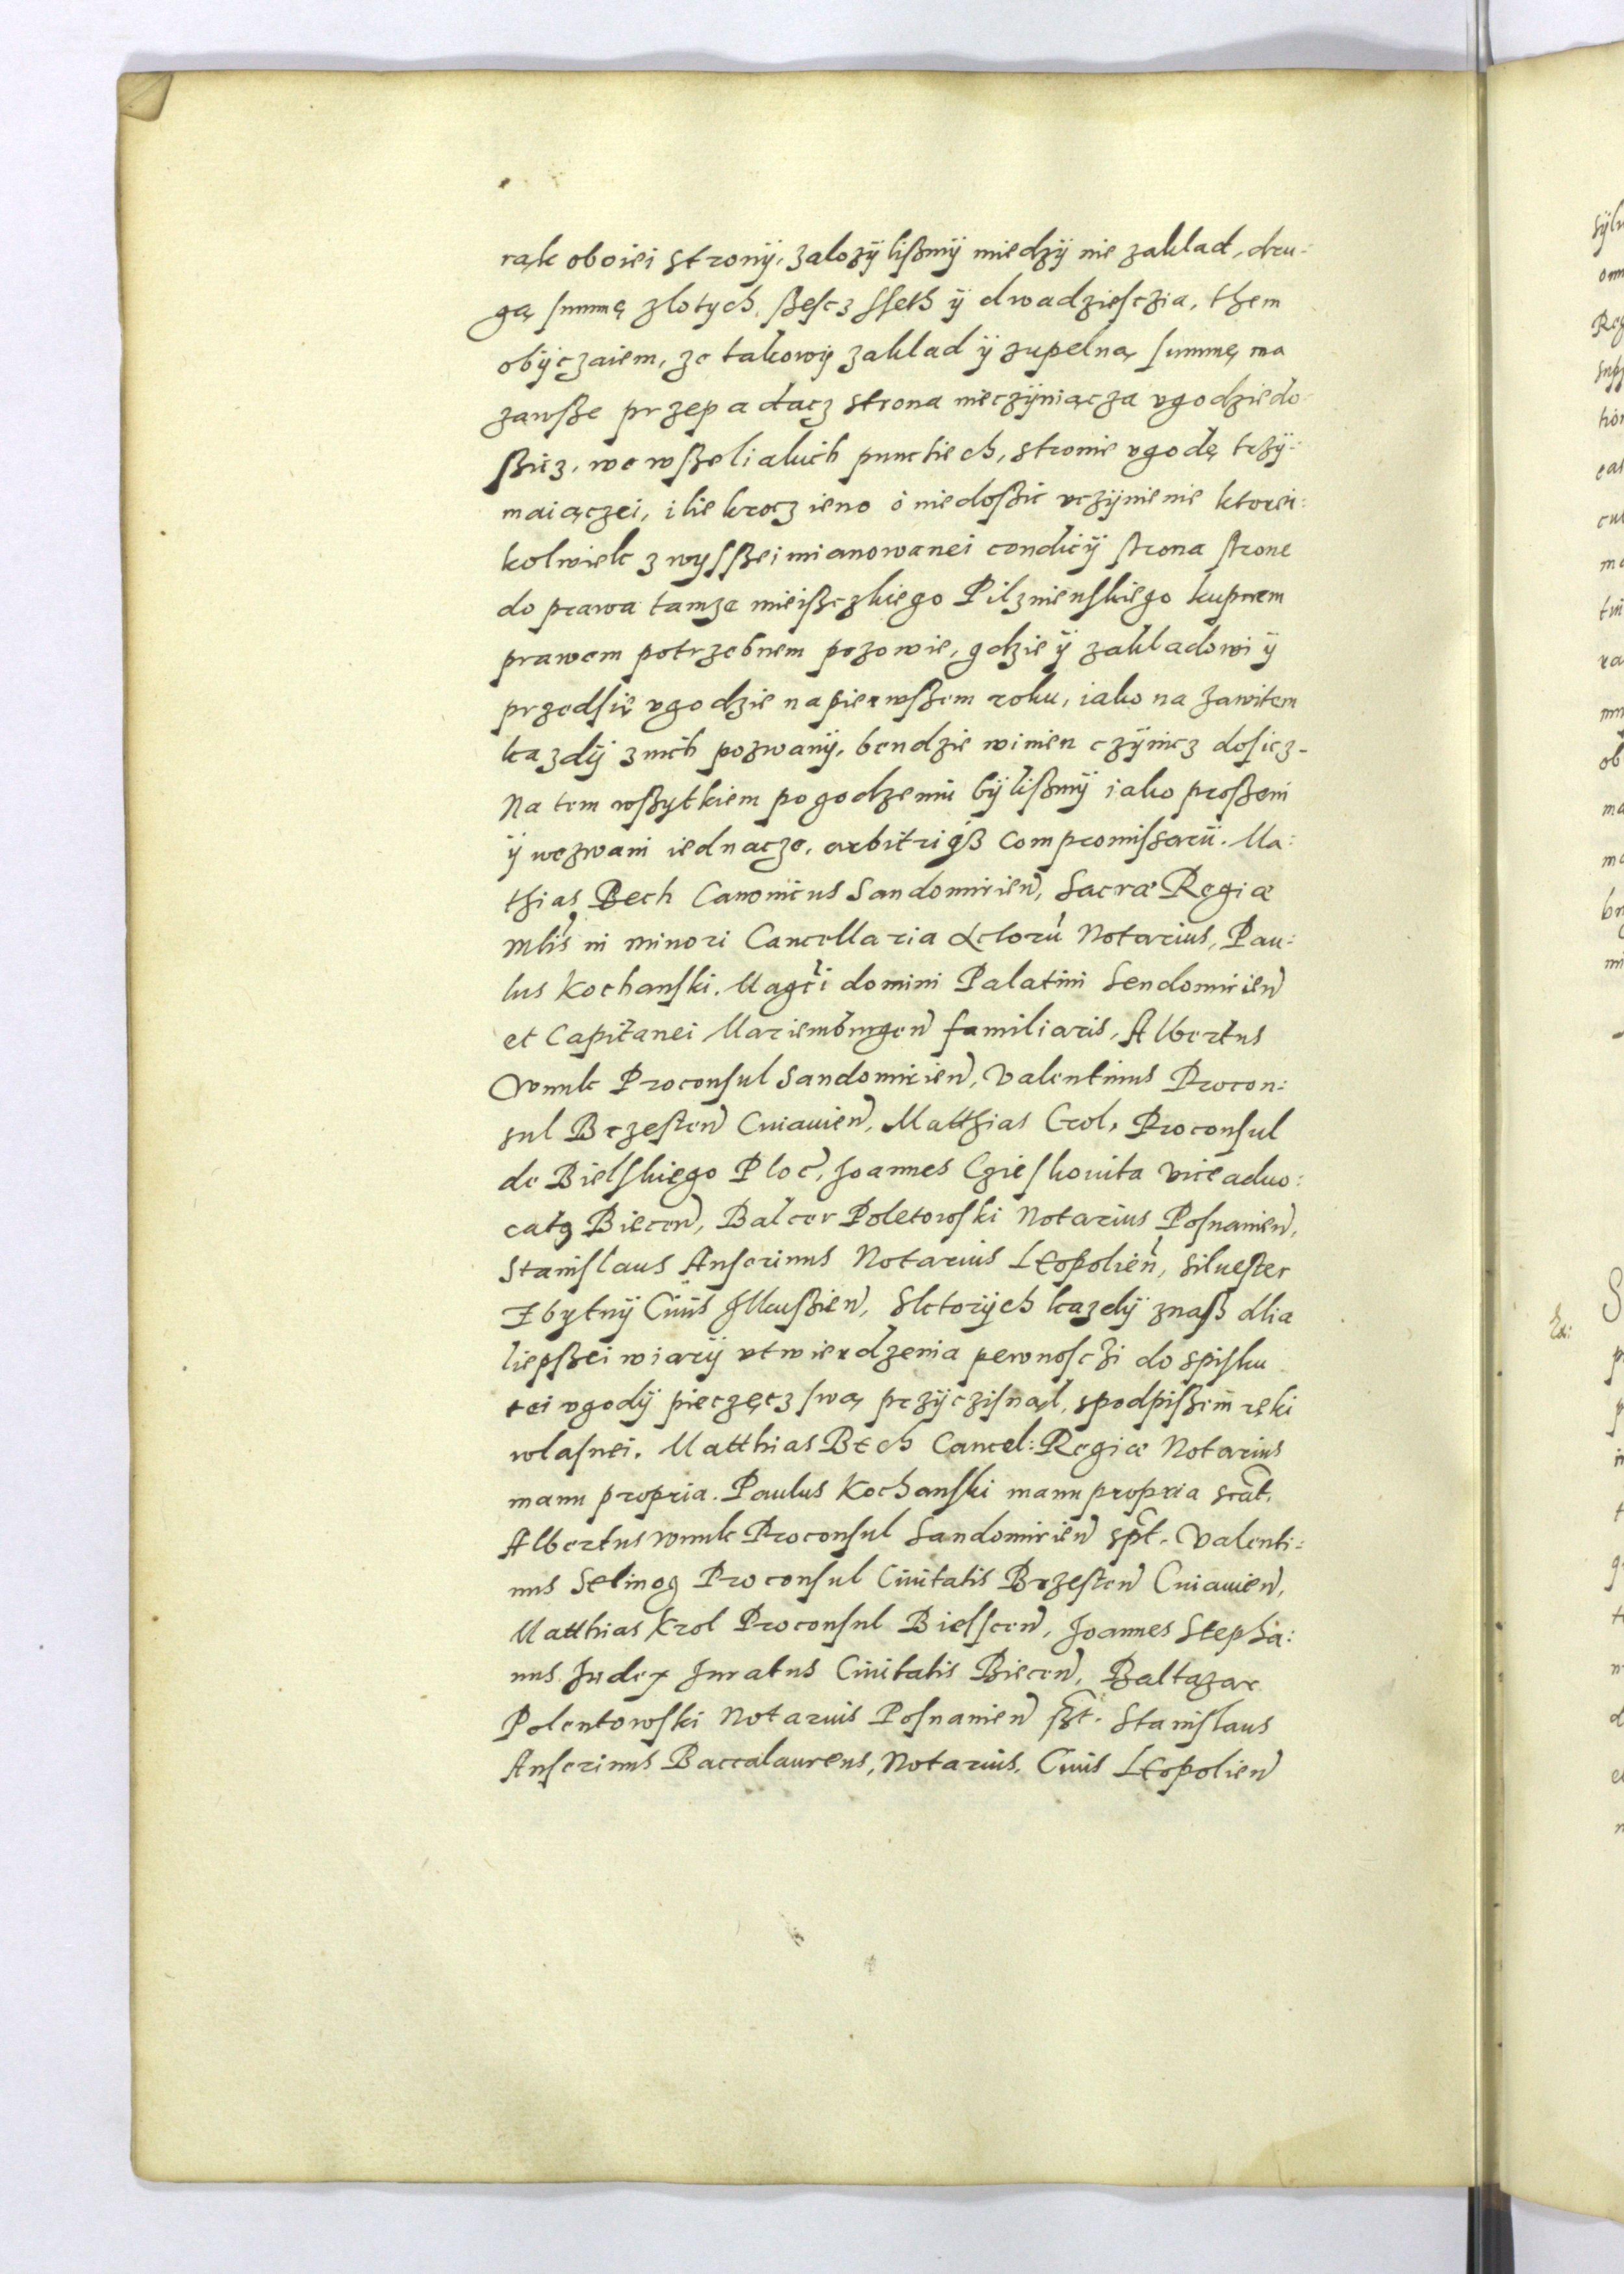 rąk oboiei stronÿ, zalozÿlißmÿ miedzÿ nie zaklad, dru:
gą summę zlotych, ßescz sseth ÿ dwadziesczia, them
obÿczaiem, ze takowÿ zaklad ÿ zupelną summę ma
zawsße przepadacz strona nieczÿniącza vgodzie do
ßicz, we wßeliakich punctiech, stronie vgodę trzÿ:
maiączei, ilie krocz ieno o niedoßic vczÿnienie ktorei:
kolwiek z wysßei mianowanei condicÿ strona strone
do prawa tamze mieißczkiego Pilznienskiego kupnem
prawem potrzebnem pozowie, gdzie ÿ zakladowi ÿ
przedsię vgodzie na pierwßem roku, iako na zawitem
kazdÿ z nich pozwanÿ, bendzie winien czÿnicz dosicz.
Na tem wßytkiem pogodzeniu bÿlißmÿ iako proßeni
ÿ wezwani iednacze, arbitri compromissarii. Ma:
thias Bech Canonicus Sandomirien, Sacræ Regiæ
Mtis in minori Cancellaria Actoru Notarius, Pau:
lus Kochanski. Magci domini Palatini Sendomirien
et Capitanei Mariemburgen familiaris, Albertus
Wnuk Proconsul Sandomirien, Valentinus Procon:
sul Brzesten Cuiauien, Matthias Crol, Proconsul
de Bielskiego Ploc, Joannes Czieskouita viceaduo:
catg Biecen, Balcer Poletowski Notarius Posnanien,
Stanislaus Anserinus Notarius Leopolien, Siluester
Zbytnÿ Ciuis Ilkußien, Sktorÿch kazdÿ znaß dlia
liepßei wiarÿ vtwierdzenia pewnosczi do spisku
tei vgodÿ pieczęcz swą przÿczisnąl, s podpißem ręki
wlasnei. Matthias Bech Cancel: Regiæ Notarius
manu propria. Paulus Kochanski manu propria scat.
Albertus Wnuk Proconsul Sandomirien spt. Valenti:
nus Selinog Proconsul Ciuitatis Brzesten Cuiauien,
Matthias Krol Proconsul Bielscen, Joannes Stepha:
nus Judex Juratus Ciuitatis Biecen, Baltazar
Polentowski Notarius Posnanien spt. Stanislaus
Anserinus Baccalaureus, Notarius, Ciuis Leopolien